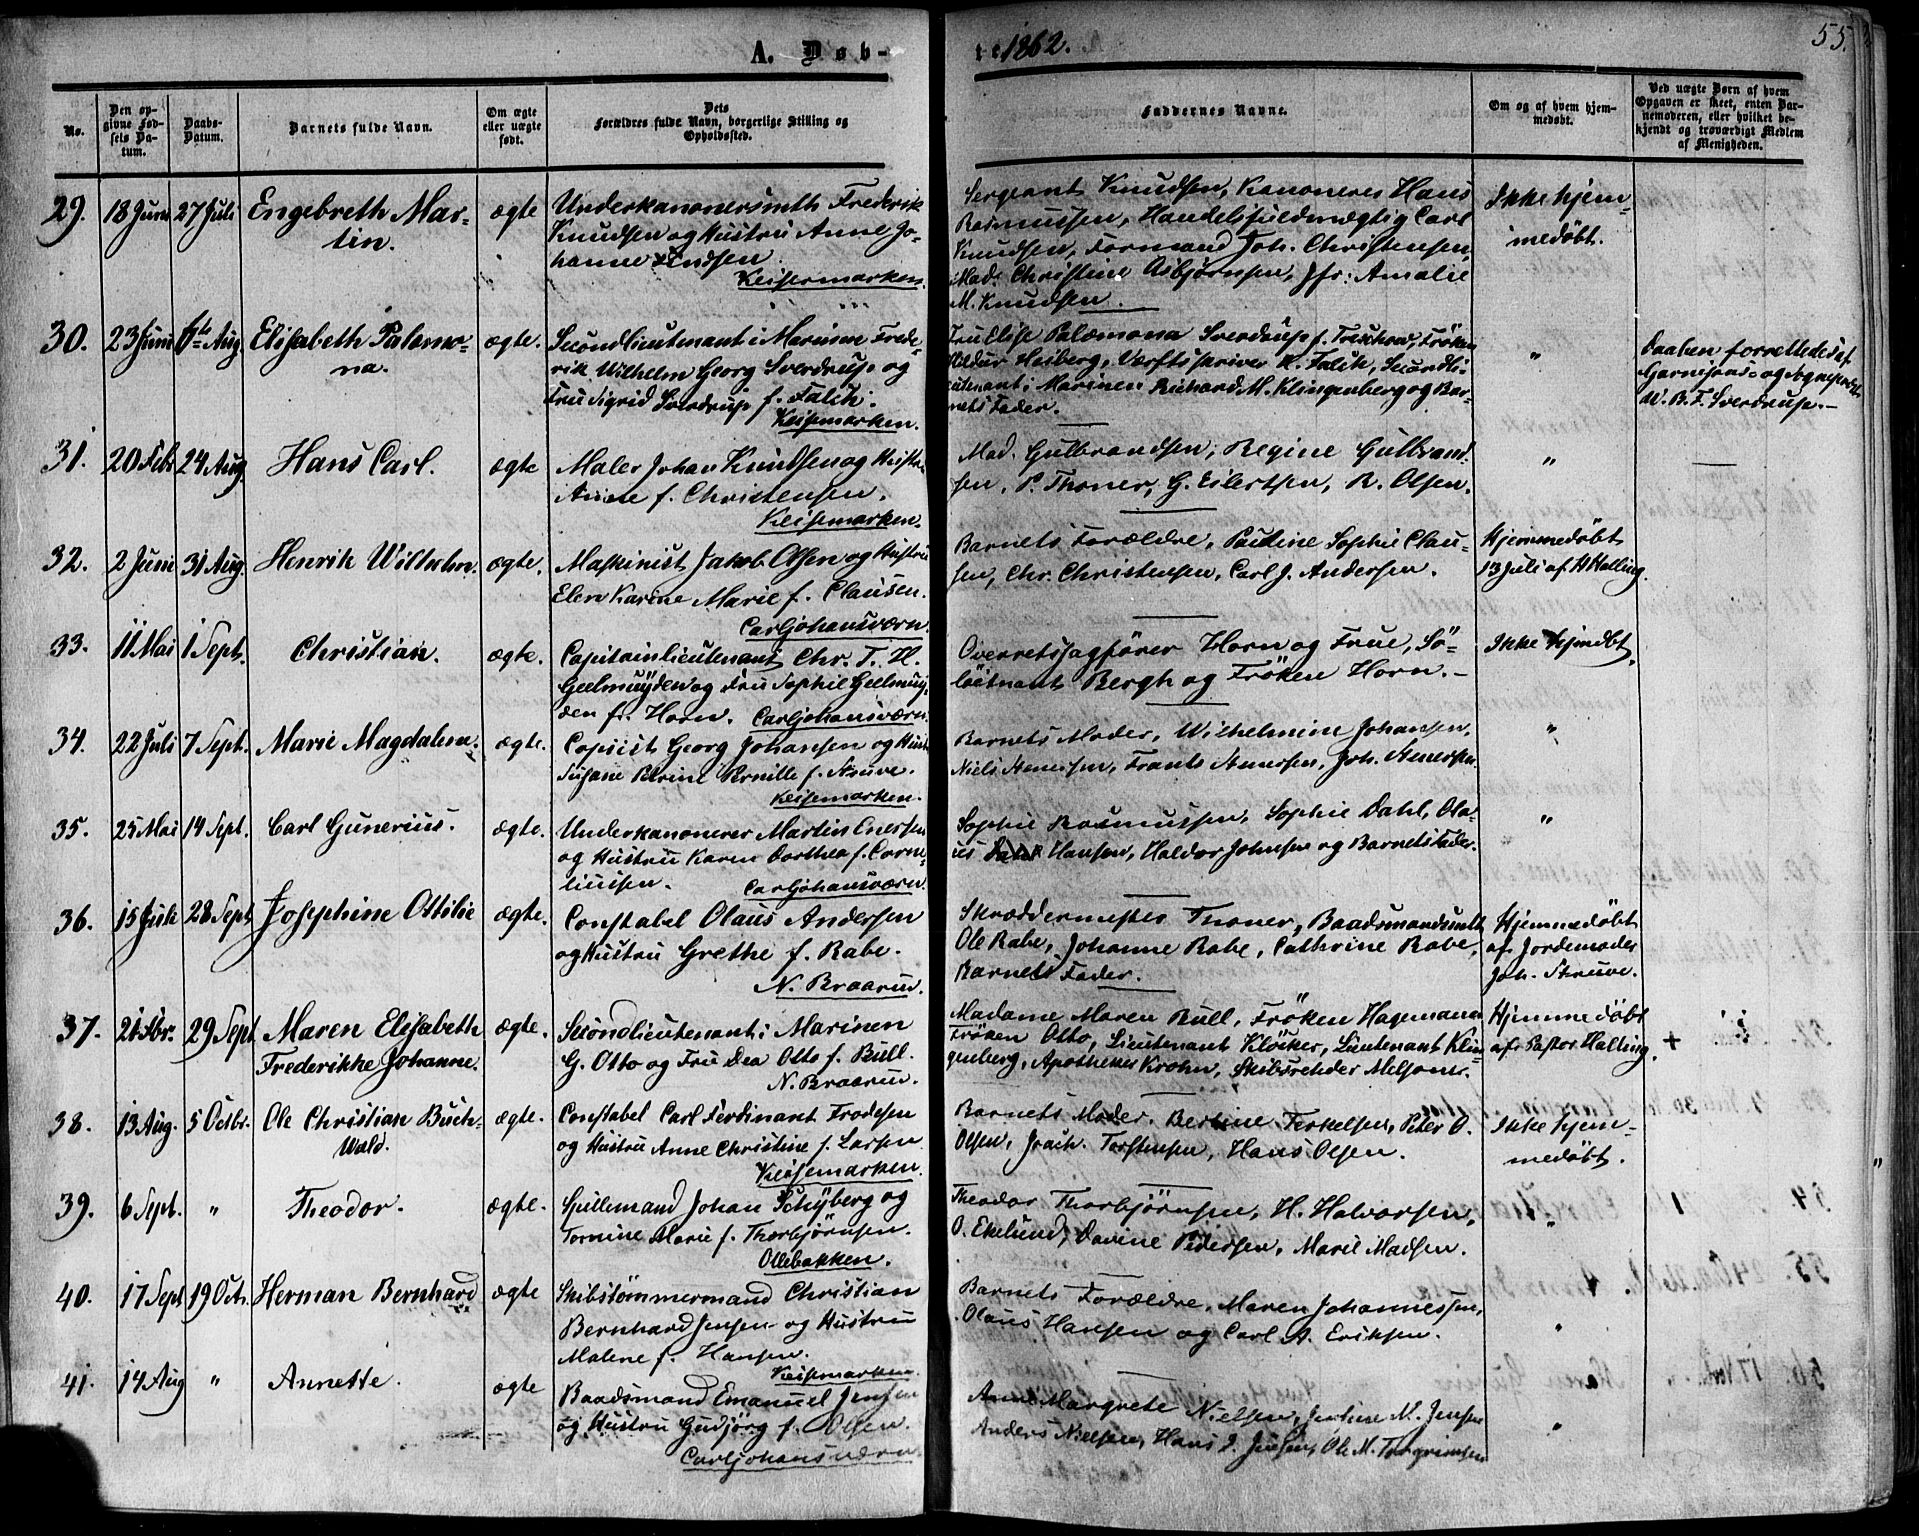 A. Døb-
te 1862.
55.
No.
Den op-
givne Fød-
sels Da-
tum.
Daabs-
Datum.
Barnets fulde Navn.
Om ægte
eller uægte
født.
Dets
Forældres fulde Navn, borgerlige Stilling og
Opholdssted.
Faddernes Navne.
Om og af hvem hjem-
medøbt.
Ved uægte Børn af hvem
Opgaven er skeet, enten Bar-
nemoderen, eller hvilket be-
kjendt og troværdigt Medlem
af Menigheden.
29. 18 Juni 27 Juli Engebreth Mar-
tin.
ægte
Underkanonersmth Frederik
Knudsen og Hustru Anne Jo-
hanne Knudsen.
Keisemarken.
Sergeant Knudsen, Kanoneer Hans
Rasmussen, Handelsfuldmægtig Carl
Knudsen, Formand Joh. Christensen,
Mad. Christine Asbjørnsen, Jfr. Amalie
M. Knudsen.
Ikke hjem-
medøbt.
30. 23 Juni Aug. Elisabeth Palæmo-
na.
ægte.
Secondlieutenant i Marinen Frede-
rik Wilhelm Georg Sverdrup og
Fru Sigrid Sverdrup f. Falck.
Keisemarken.
Fru Elise Palæmona Sverdrup f. Frøken
Hildur Heiberg, Værftsskriver K. Falck, Secondli-
eutenant i Marinen Richard M. Klingenberg og Bar-
nets Fader.
"
Daaben forrettedes af
Garnisons- og Sognepræst
W. B. F. Sverdrup.-
31. 20 Febr 24 Aug. Hans Carl.
ægte
Maler Johan Knudsen og Hustru
Anne f. Christensen.
Keisemarken.
Mad. Gulbrandsen, Regine Gulbrand-
sen, P. Thoner, G. Eilertsen, R. Olsen.
"
32. 2 Juni 31 Aug. Henrik Wilhelm.
ægte.
Maskinist Jakob Olsen og Hustru
Elen Karine Marie f. Clausen.
Carljohansværn.
Barnets Forældre, Pauline Sophie Clau-
sen, Chr. Christensen, Carl J. Andersen.
Hjemmedøbt
13 Juli af H Halling.
33. 11 Mai 1 Sept. Christian.
ægte.
Capitainlieutenant Chr. T. H.
Geelmuÿden og Fru Sophie Geelmuy-
den f. Horn. Carljohansværn.
Overretssagfører Horn og Frue, Sö-
löitnant Bergh og Frøken Horn.-
Ikke hjmdøbt.
34. 22 Juli 7 Sept. Marie Magdalena.
ægte.
Copiist Georg Johansen og Hust.
Susane Perine Pernille f. Struve.
Keisemarken.
Barnets Moder, Wilhelmine Johansen,
Niels Amersen, Frants Amersen, Joh. Amersen.
"
35. 25 Mai 14 Sept. Carl Gunerius.
ægte.
Underkanonerer Martin Enersen
og Hustru Karen Dorthea f. Corne-
liussen. Carljohansværn.
Sophie Rasmussen, Sophie Dahl, Ola-
us Hansen, Haldor Johnsen og Barnets Fader.
"
36. 15 Juli 28 Sept. Josephine Ottilie
ægte.
Constabel Olaus Andersen
og Hustru Grethe f. Rabe.
N. Braarud.
Skræddermester Thoner, Baadsmandsmth
Ole Rabe, Johanne Rabe, Cathrine Rabe,
Barnets Fader.
Hjemmedøbt
af Jordemoder
Joh. Struve.
37. 29 Sept Maren Elisabeth
Frederikke Johanne.
ægte.
Secondlieutenant i Marinen
G. Otto og Fru Dea Otto f. Bull.
N. Braarud.
Madame Maren Bull, Frøken Hagemann
Frøken Otto, Lieutenant Klöcker, Lieutenant Klin-
genberg, Apotheker Krohn, Skibsrheder Melsom.
Hjemmedöbt
af Pastor Halling.
+
38. 13 Aug. 5 Octbr. Ole Christian Buch-
wald.
ægte.
Constabel Carl Ferdinant Frodesen
og Hustru Anne Christine f. Larsen
Keisemarken.
Barnets Moder, Bertine Terkelsen, Peter O.
Olsen, Joach. Torstensen, Hans Olsen.
Ikke hjem-
medøbt.
39. 6 Sept. " Theodor.
ægte.
Spillemand Johan Schÿberg og
Tomine Marie f. Thorbjørnsen.
Ollebakken.
Theodor Thorbjørnsen, H. Halvorsen,
O. Ekelund, Davine Pedersen, Marie Madsen.
"
40. 17 Sept 19 Oct. Herman Bernhard
ægte
Skibstömmermand Christian
Bernhard Jensen og Hustru
Malene f. Hansen.
Keisemarken.
Barnets Forældre, Maren Johannessen,
Olaus Hansen og Carl A. Eriksen.
"
41. 14 Aug " Annette.
ægte
Baadsmand Emanuel Jensen
og Hustru Gudjörg f. Olsen.
Carljohansværn
Anne Margrete Nielsen, M. Jensen
Anders Nielsen, Hans J. Jensen, Ole M. Torgrimsen
"